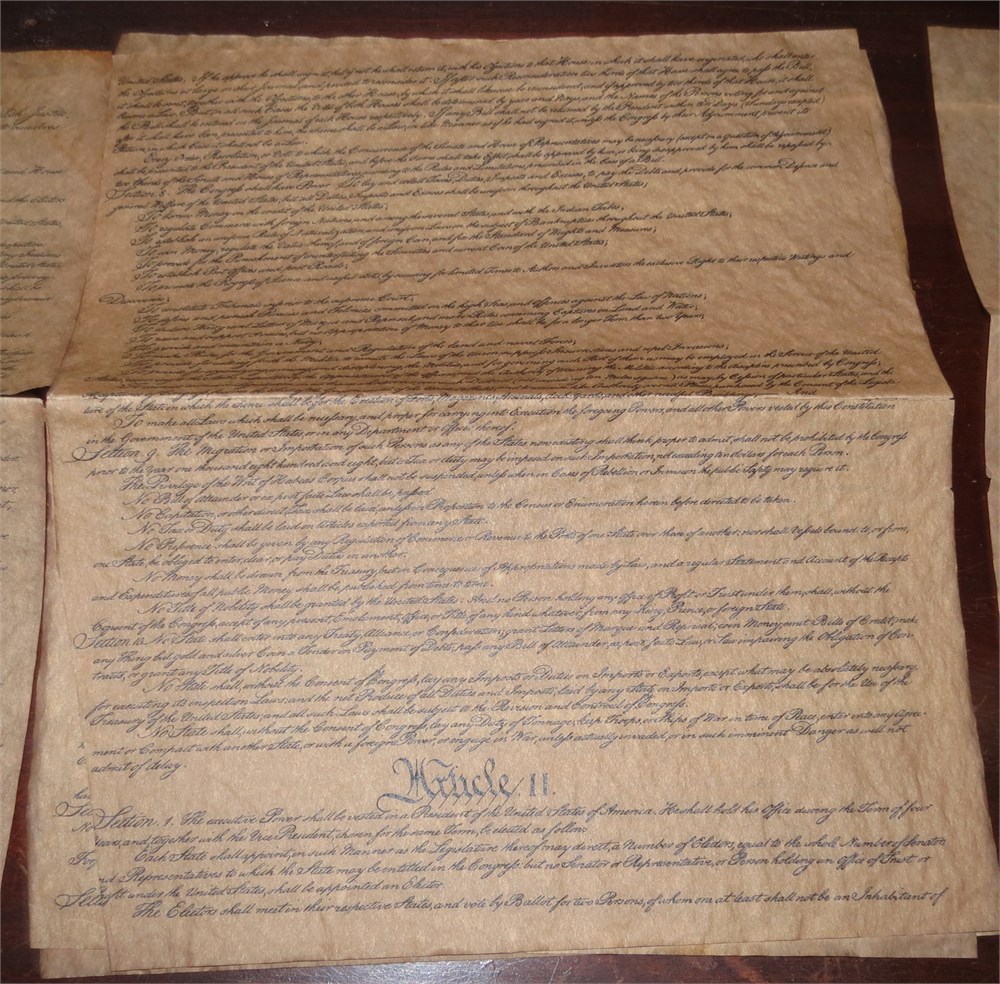 United States; If he approve he shall sign it, but if not he shall return it, with his Objections to that House in which it shall have originated, who shall enter
the Objections at large on their Journal, and proceed to reconsider it. If after such Reconsideration two thirds of that House shall agree to pass the Bill,
it shall be sent, together with the Objections, to the other House, by which it shall likewise be reconsidered, and if approved by two thirds of that House, it shall
become a Law. But in all such Cases the Votes of both Houses shall be determined by yeas and Nays, and the Names of the Persons voting for and against
the Bill shall be entered on the Journal of each House respectively. If any Bill shall not be returned by the President within ten Days (Sundays excepted)
after it shall have been presented to him, the Same shall be a Law, in like Manner as if he had signed it, unless the Congress by their Adjournment prevent its
Return, in which Case it shall not be a Law.
Every Order, Resolution, or Vote to which the Concurrence of the Senate and House of Representatives may be necessary (except on a question of Adjournment)
shall be presented to the President of the United States; and before the Same shall take Effect, shall be approved by him, or being disapproved by him, shall be repassed by
two thirds of the Senate and House of Representatives, according to the Rules and Limitations prescribed in the Case of a Bill.
Section. 8. The Congress shall have Power To lay and collect Taxes, Duties, Imposts and Excises, to pay the Debts and provide for the common Defence and
general Welfare of the United States; but all Duties, Imposts and Excises shall be uniform throughout the United States;
To borrow Money on the credit of the United States;
To regulate Commerce with foreign Nations, and among the several States, and with the Indian Tribes;
To establish an uniform Rule of Naturalization, and uniform Laws on the subject of Bankruptcies throughout the United States;
To coin Money, regulate the Value thereof, and of foreign Coin, and fix the Standard of Weights and Measures;
To provide for the Punishment of counterfeiting the Securities and current Coin of the United States;
To establish Post Offices and post Roads;
To promote the Progress of Science and useful Arts, by securing for limited Times to Authors and Inventors the exclusive Right to their respective Writings and
Discoveries;
To constitute Tribunals inferior to the supreme Court;
To define and punish Piracies and Felonies committed on the high Seas, and Offences against the Law of Nations;
To declare War, grant Letters of Marque and Reprisal, and make Rules concerning Captures on Land and Water;
To raise and support Armies, but no Appropriation of Money to that Use shall be for a longer Term than two Years;
To provide and maintain a Navy;
To make Rules for the Government and Regulation of the land and naval Forces;
ture of the State in which the Same shall be, for the Erection of Forts, Magazines, Arsenals, dock-Yards, and other needful Buildings;
To make all Laws which shall be necessary and proper for carrying into Execution the foregoing Powers, and all other Powers vested by this Constitution
in the Government of the United States, or in any Department or Officer thereof.
Section. 9. The Migration or Importation of such Persons as any of the States now existing shall think proper to admit, shall not be prohibited by the Congress
prior to the Year one thousand eight hundred and eight, but a Tax or duty may be imposed on such Importation, not exceeding ten dollars for each Person.
The Privilege of the Writ of Habeas Corpus shall not be suspended, unless when in Cases of Rebellion or Invasion the public Safety may require it.
No Bill of Attainder or ex post facto Law shall be passed.
No Capitation, or other direct, Tax shall be laid, unless in Proportion to the Census or Enumeration herein before directed to be taken.
No Tax or Duty shall be laid on Articles exported from any State.
No Preference shall be given by any Regulation of Commerce or Revenue to the Ports of one State over those of another: nor shall Vessels bound to, or from,
one State, be obliged to enter, clear, or pay Duties in another.
No Money shall be drawn from the Treasury, but in Consequence of Appropriations made by Law; and a regular Statement and Account of the Receipts
and Expenditures of all public Money shall be published from time to time.
No Title of Nobility shall be granted by the United States: And no Person holding any Office of Profit or Trust under them, shall, without the
Consent of the Congress, accept of any present, Emolument, Office, or Title, of any kind whatever, from any King, Prince, or foreign State.
Section. 10. No State shall enter into any Treaty, Alliance, or Confederation; grant Letters of Marque and Reprisal; coin Money; emit Bills of Credit; make
any Thing but gold and silver Coin a Tender in Payment of Debts; pass any Bill of Attainder, ex post facto Law, or Law impairing the Obligation of Con-
tracts, or grant any Title of Nobility.
No State shall, without the Consent of the Congress, lay any Imposts or Duties on Imports or Exports, except what may be absolutely necessary
for executing its inspection Laws: and the net Produce of all Duties and Imposts, laid by any State on Imports or Exports, shall be for the Use of the
Treasury of the United States; and all such Laws shall be subject to the Revision and Controul of the Congress.
No State shall, without the Consent of Congress, lay any Duty of Tonnage, keep Troops, or Ships of War in time of Peace, enter into any Agree-
ment or Compact with another State, or with a foreign Power, or engage in War, unless actually invaded, or in such imminent Danger as will not
admit of delay.
Article. II.
Section. 1. The executive Power shall be vested in a President of the United States of America. He shall hold his Office during the Term of four
Years, and, together with the Vice President, chosen for the same Term, be elected, as follows
Each State shall appoint, in such Manner as the Legislature thereof may direct, a Number of Electors, equal to the whole Number of Senators
and Representatives to which the State may be entitled in the Congress: but no Senator or Representative, or Person holding an Office of Trust or
Profit under the United States, shall be appointed an Elector.
The Electors shall meet in their respective States, and vote by Ballot for two Persons, of whom one at least shall not be an Inhabitant of